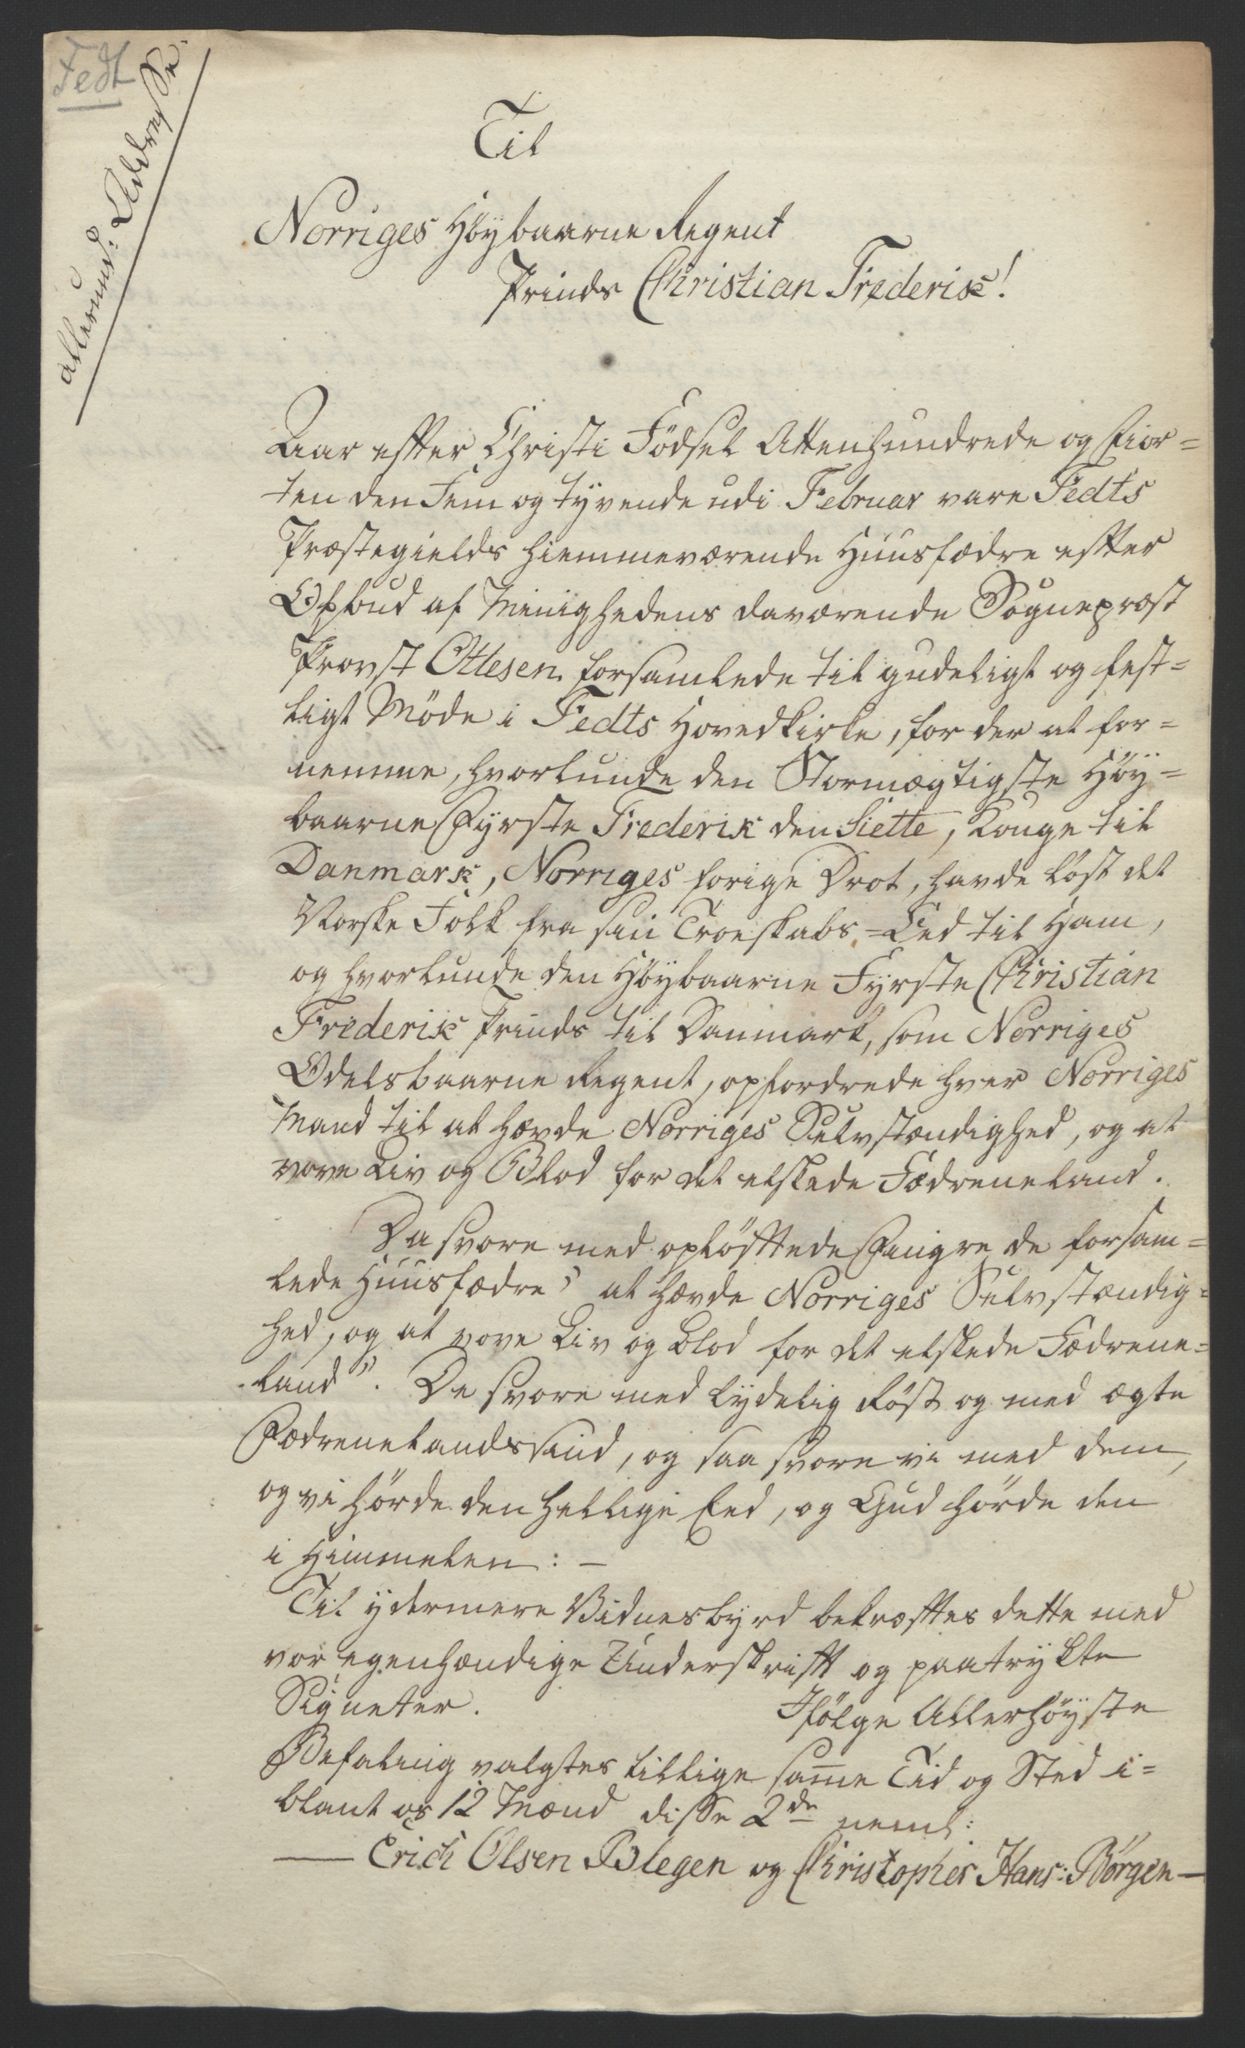 Fedt
allerund: Addresse
Til
Norriges Høybaarne Regent
Prinds Christian Frederik!
Aar efter Christi Fødsel Attenhundrede og Fior-
ten den Fem og tyvende udi Februar vare Fedts
Præstegields hiemmeværende Huusfædre efter
Opbud af Meenighedens daværende Sognepræst
Provst Ottesen forsamlede til gudeligt og fest-
ligt Møde i Fedts Hovedkirke, for der at for-
nemme, hvorlunde den Stormægtigste Høy-
baarne Fyrste Frederik den Siette, Konge til
Danmark, Norriges forige Drot, havde løst det
Norske Folk fra sin Troeskabs-Eed til Ham,
og hvorlunde den Høybaarne Fyrste Christian
Frederik Prinds til Danmark, som Norriges
Odelsbaarne Regent, opfordrede hver Norriges
Mand til at hævde Norriges Selvstændighed, og at
vove Liv og Blod for det elskede Fædreneland.
Da svore med opløftede Fingre de forsam-
lede Huusfædre "at hævde Norriges Selvstændig-
hed, og at vove Liv og Blod for det elskede Fædrene-
land". De svore med lydelig Røst og med ægte
Fædrenelandssind, og saa svore vi med dem,
og vi hørde den hellige Eed, og Gud hørde den
i Himmelen: -
Til ydermere Vidnesbyrd bekræftes dette med
vor egenhændige Underskrift og paatrykte
Signeter. Ifølge Allerhøyste
Befaling valgtes tillige samme Tid og Sted i-
blant os 12 Mænd disse 2de neml:
Erich Olsen Blegen og Christopher Hans: Børgen